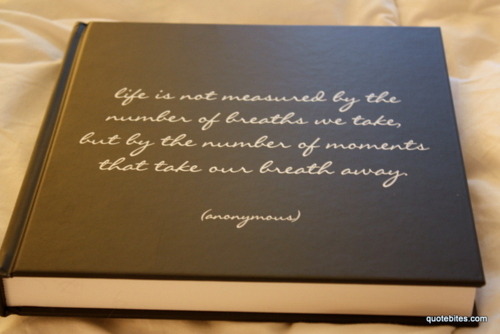 life is not measured by the
number of breaths we take,
but by the number of moments
that take our breath away.
(anonymous)
quotebites.com